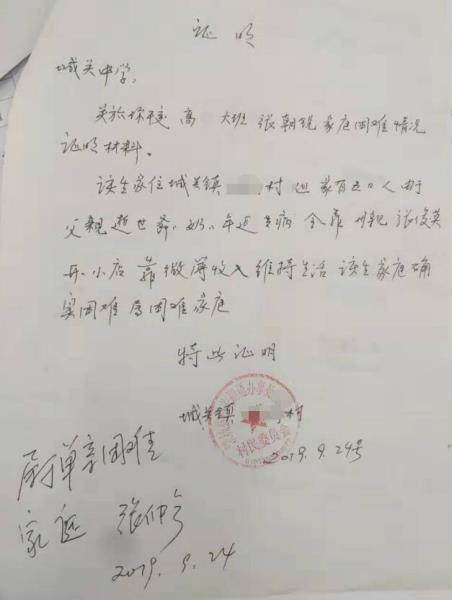 证明
城关中学,
关於你校高 大班 张朝锐家庭困难情况
证明材料。
该生家住城关镇 村 组 家有五口人 由于
父亲逝世 爷、奶、年迈多病 全靠母亲 张俊英
开小店 靠微薄收入 维持生活 该生家庭确
实困难 属困难家庭
特此证明
城关镇 村
街道办事处
村民委员会
2019.9.24号
属单亲困难
家庭 张仲
2019.9.24